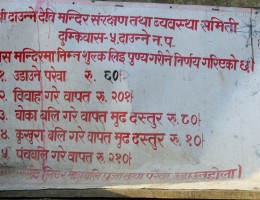 दाउन्ने देवि मन्दिर संरक्षण तथा व्यवस्था समिती
दुम्किवास-५, दाउन्ने न.प.
मन्दिरमा निम्न शुल्क लिइ पुण्य गरीने निर्णय गरिएको छ।
१. उडाउने परेवा रु. ६०
२. विवाह गरे वापत रु. २०१
३. बोका बलि गरे वापत मुढ दस्तुर रु. ८०
४. कुखुरा बलि गरे वापत मुढ दस्तुर रु. १०
५ पंचबलि गरे वापत रु. २१०